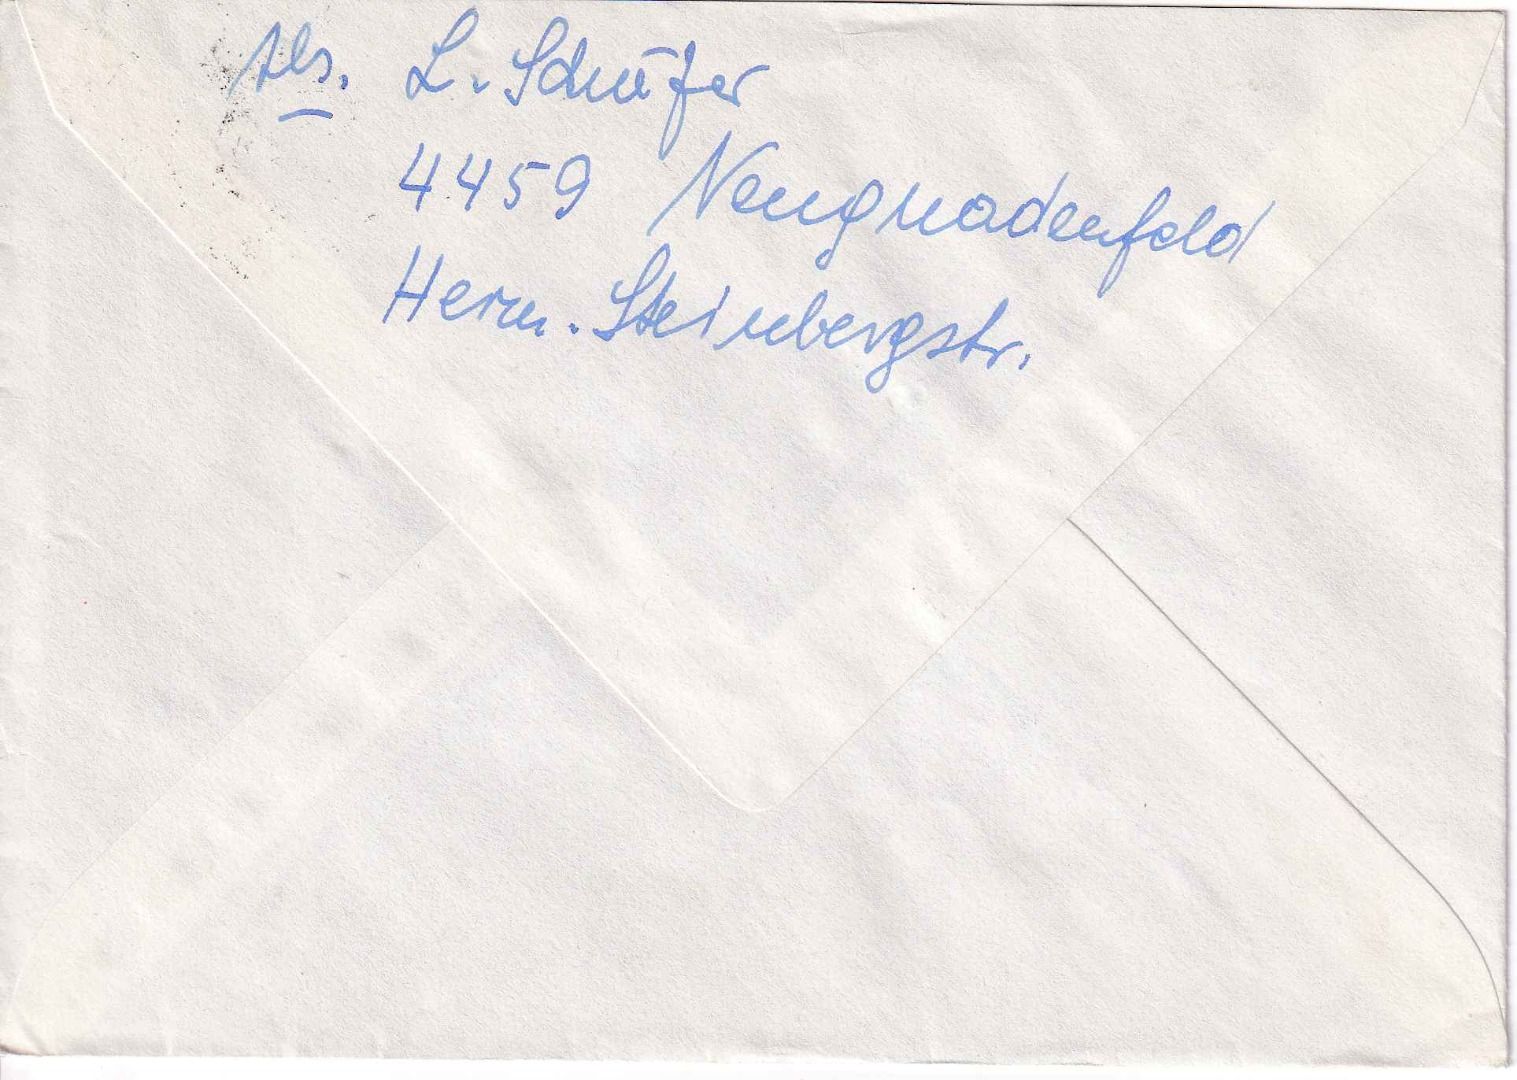 Abs. L. Schäfer
4459 Neugnadenfeld
Herm. Steinbergstr.